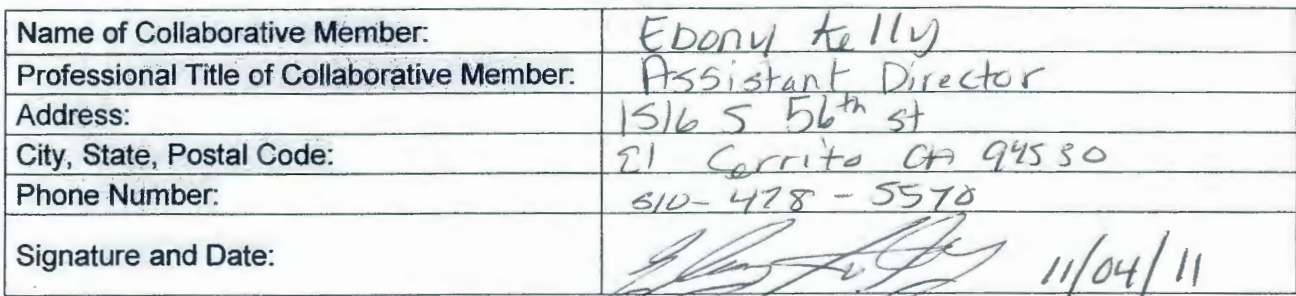 Name of Collaborative Member: Ebony Kelly
Professional Title of Collaborative Member: Assistant Director
Address: 1516 S 56th st
City, State, Postal Code: El Cerrito CA 94530
Phone Number: 510-478-5570
Signature and Date: 11/04/11